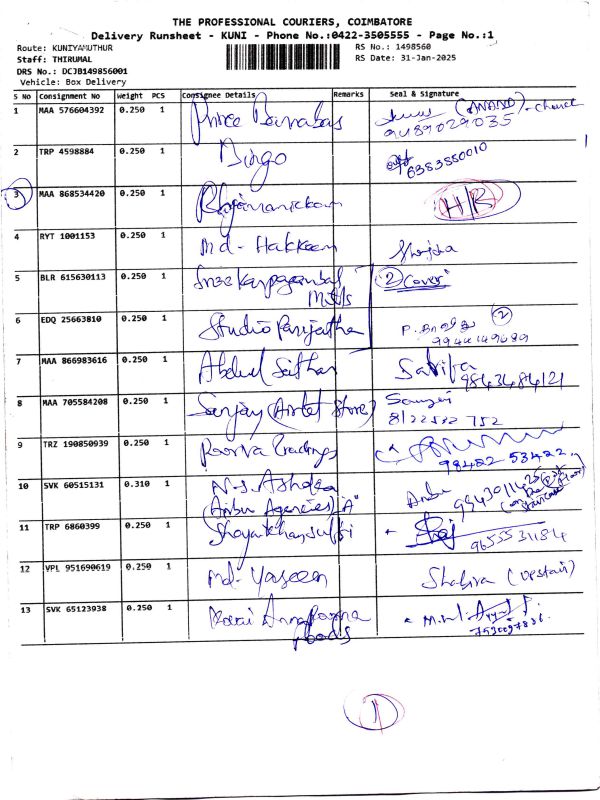 THE PROFESSIONAL COURIERS, COIMBATORE
Delivery Runsheet - KUNI - Phone No.:0422-3505555 - Page No.:1
Route: KUNIYAMUTHUR RS No.: 1498560
Staff: THIRUMAL RS Date: 31-Jan-2025
DRS No.: DCJB149856001
Vehicle: Box Delivery
S No Consignment No Weight PCS Consignee Details Remarks Seal & Signature
1 MAA 576604392 0.250 1 Prince Barnabas (ANAND) -
9489029035
2 TRP 4598884 0.250 1 Dingo 6383550010
3 MAA 868534420 0.250 1 H/R
4 RYT 1001153 0.250 1 Md- Hakkeem
5 BLR 615630113 0.250 1 Sree Karpagambal Mills 2 Cover"
6 EDQ 25663810 0.250 1 Studio Parijatha 2
7 MAA 866983616 0.250 1 Abdul Sathar Sabiba
9843484121
8 MAA 705584208 0.250 1 Sanjay (Airtel Store) Sanjay
8122522 752
9 TRZ 190850939 0.250 1 Poorva Tradings
98422 53422
10 SVK 60515131 0.310 1 N.S. Ashdea Anbu
(Anbu Agencies) "A"
11 TRP 6860399 0.250 1
9655531184
12 VPL 951690619 0.250 1 Md- Yaseen Shahira (upstair)
13 SVK 65123938 0.250 1 Kovai Annapoorna
Foods
1